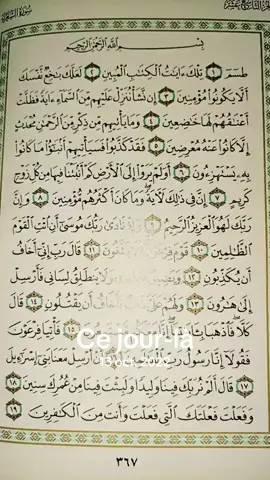 بِسْمِ اللَّهِ الرَّحْمَٰنِ الرَّحِيمِ
طسٓمٓ ١ تِلْكَ ءَايَٰتُ ٱلْكِتَٰبِ ٱلْمُبِينِ ٢ لَعَلَّكَ بَٰخِعٌ نَّفْسَكَ
أَلَّا يَكُونُوا۟ مُؤْمِنِينَ ٣ إِن نَّشَأْ نُنَزِّلْ عَلَيْهِم مِّنَ ٱلسَّمَآءِ ءَايَةً فَظَلَّتْ
أَعْنَٰقُهُمْ لَهَا خَٰضِعِينَ ٤ وَمَا يَأْتِيهِم مِّن ذِكْرٍ مِّنَ ٱلرَّحْمَٰنِ مُحْدَثٍ
إِلَّا كَانُوا۟ عَنْهُ مُعْرِضِينَ ٥ فَقَدْ كَذَّبُوا۟ فَسَيَأْتِيهِمْ أَنۢبَٰٓؤُا۟ مَا كَانُوا۟
بِهِۦ يَسْتَهْزِءُونَ ٦ أَوَلَمْ يَرَوْا۟ إِلَى ٱلْأَرْضِ كَمْ أَنۢبَتْنَا فِيهَا مِن كُلِّ زَوْجٍ
كَرِيمٍ ٧ إِنَّ فِى ذَٰلِكَ لَءَايَةً وَمَا كَانَ أَكْثَرُهُم مُّؤْمِنِينَ ٨ وَإِنَّ
رَبَّكَ لَهُوَ ٱلْعَزِيزُ ٱلرَّحِيمُ ٩ وَإِذْ نَادَىٰ رَبُّكَ مُوسَىٰٓ أَنِ ٱئْتِ ٱلْقَوْمَ
ٱلظَّٰلِمِينَ ١٠ قَوْمَ فِرْعَوْنَ أَلَا يَتَّقُونَ ١١ قَالَ رَبِّ إِنِّىٓ أَخَافُ
أَن يُكَذِّبُونِ ١٢ وَيَضِيقُ صَدْرِى وَلَا يَنطَلِقُ لِسَانِى فَأَرْسِلْ
إِلَىٰ هَٰرُونَ ١٣ وَلَهُمْ عَلَىَّ ذَنۢبٌ فَأَخَافُ أَن يَقْتُلُونِ ١٤ قَالَ
كَلَّا فَٱذْهَبَا بِـَٔايَٰتِنَآ ١٥ فَأْتِيَا فِرْعَوْنَ
Ce jour-là
فَقُولَآ إِنَّا رَسُولُ رَبِّ أَنْ أَرْسِلْ مَعَنَا بَنِىٓ إِسْرَٰٓءِيلَ
١٧ قَالَ أَلَمْ نُرَبِّكَ فِينَا وَلِيدًا وَلَبِثْتَ فِينَا مِنْ عُمُرِكَ سِنِينَ ١٨
وَفَعَلْتَ فَعْلَتَكَ ٱلَّتِى فَعَلْتَ وَأَنتَ مِنَ ٱلْكَٰفِرِينَ ١٩
٣٦٧